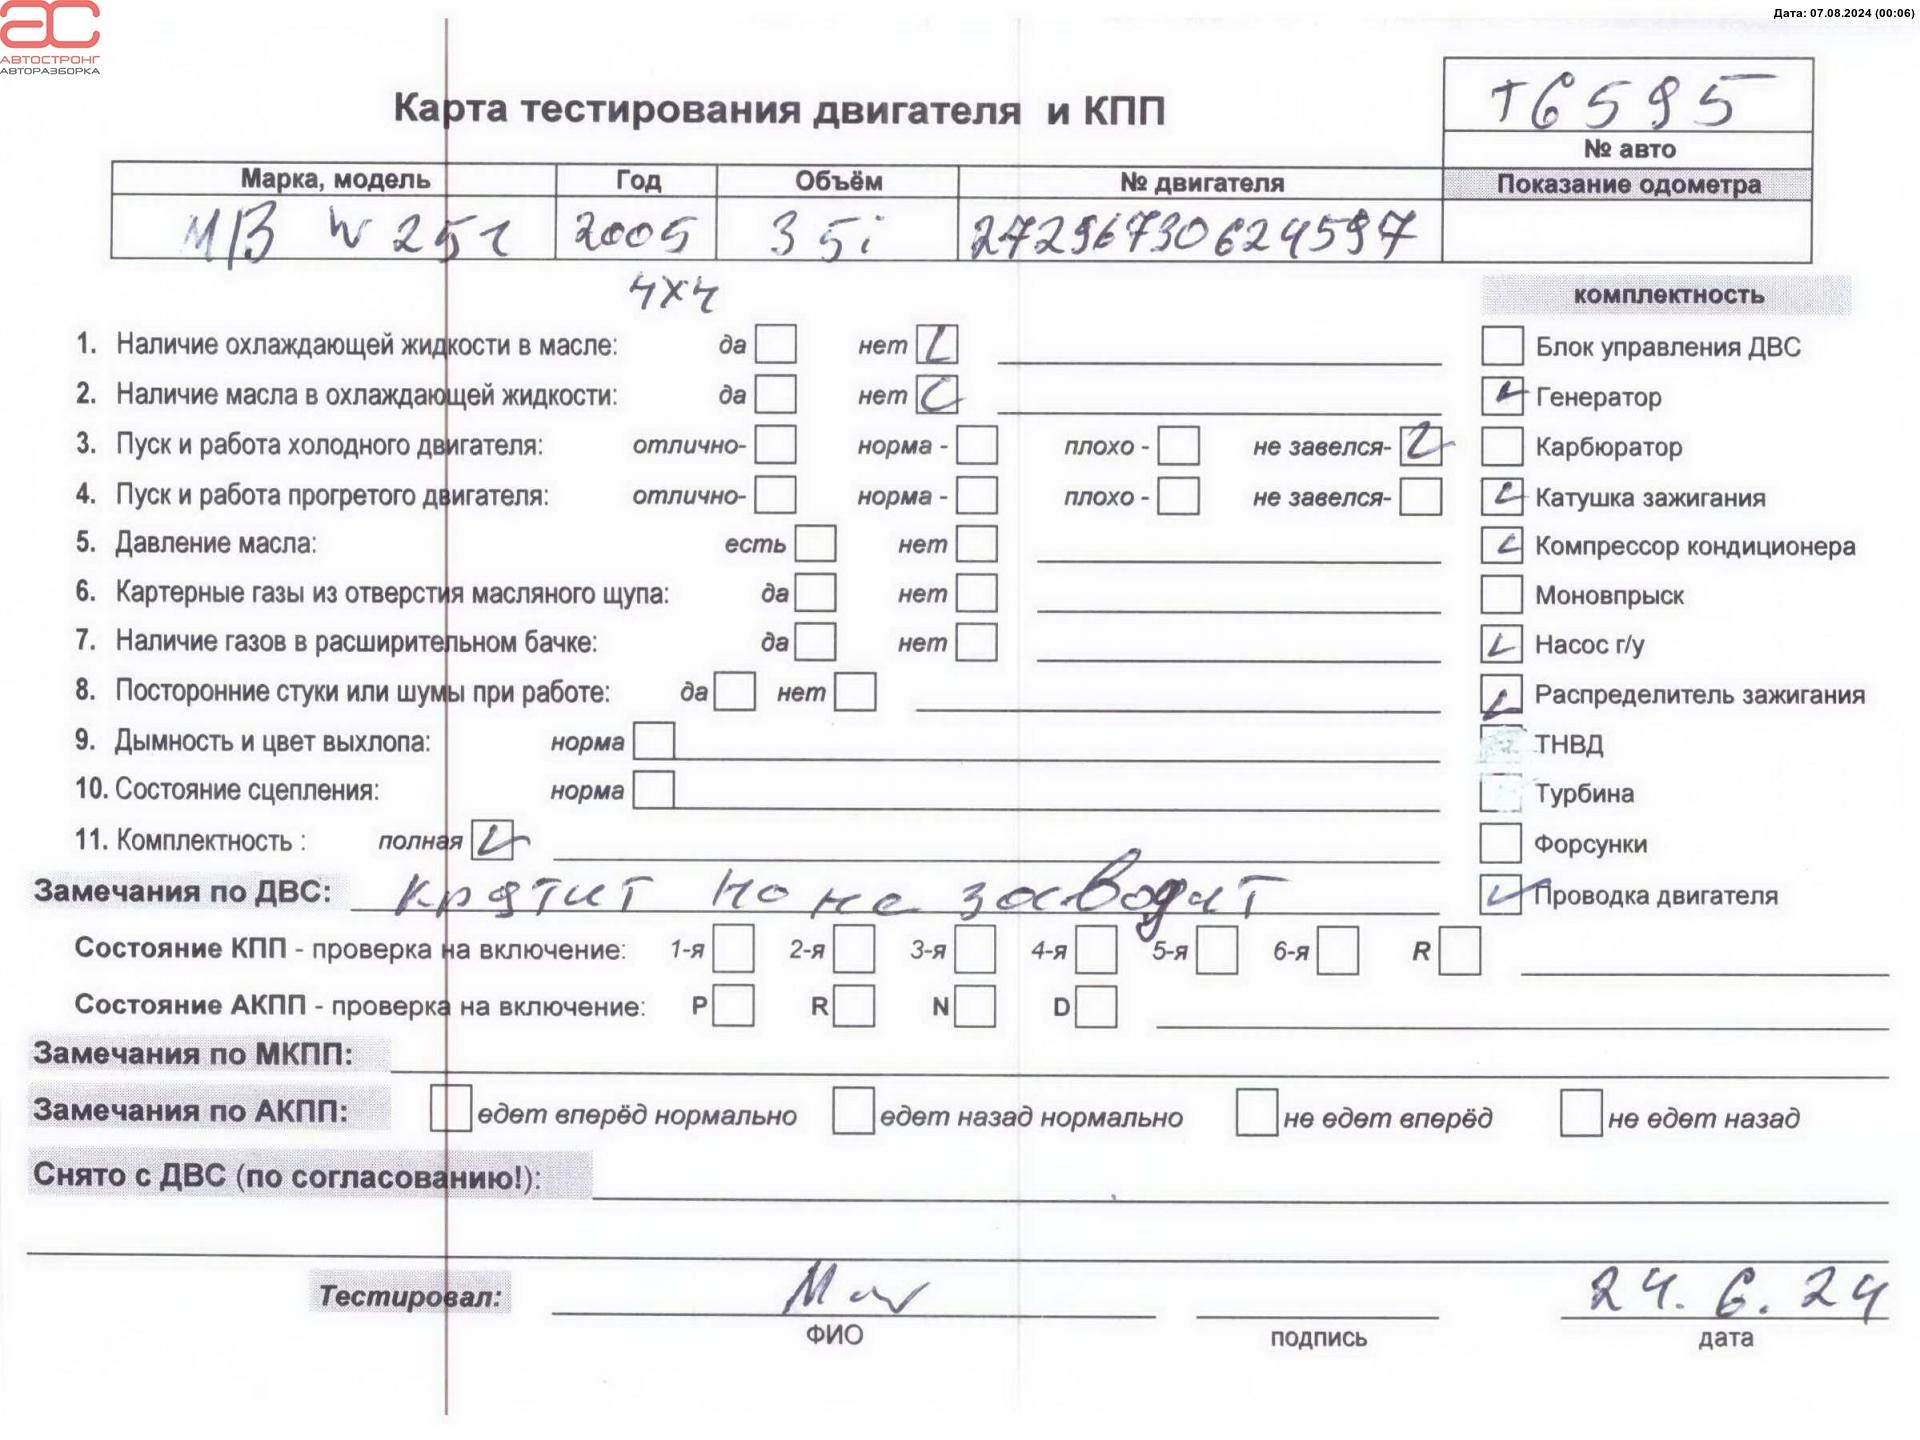 АС
АВТОСТРОНГ
АВТОРАЗБОРКА
Дата: 07.08.2024 (00:06)
Карта тестирования двигателя и КПП
Т6595
№ авто
Марка, модель Год Объём № двигателя Показание одометра
MB W251 2005 35i 27296730624597
4x4
комплектность
1. Наличие охлаждающей жидкости в масле: да нет
Блок управления ДВС
2. Наличие масла в охлаждающей жидкости: да нет
Генератор
3. Пуск и работа холодного двигателя: отлично- норма - плохо - не завелся-
Карбюратор
4. Пуск и работа прогретого двигателя: отлично- норма - плохо - не завелся-
Катушка зажигания
5. Давление масла: есть нет
Компрессор кондиционера
6. Картерные газы из отверстия масляного щупа: да нет
Моновпрыск
7. Наличие газов в расширительном бачке: да нет
Насос г/у
8. Посторонние стуки или шумы при работе: да нет
Распределитель зажигания
9. Дымность и цвет выхлопа: норма
ТНВД
10. Состояние сцепления: норма
Турбина
11. Комплектность : полная
Форсунки
Замечания по ДВС: крятит но не заводит
Проводка двигателя
Состояние КПП - проверка на включение: 1-я 2-я 3-я 4-я 5-я 6-я R
Состояние АКПП - проверка на включение: P R N D
Замечания по МКПП:
Замечания по АКПП: едет вперёд нормально едет назад нормально не едет вперёд не едет назад
Снято с ДВС (по согласованию!):
Тестировал: 24.6.24
ФИО подпись дата